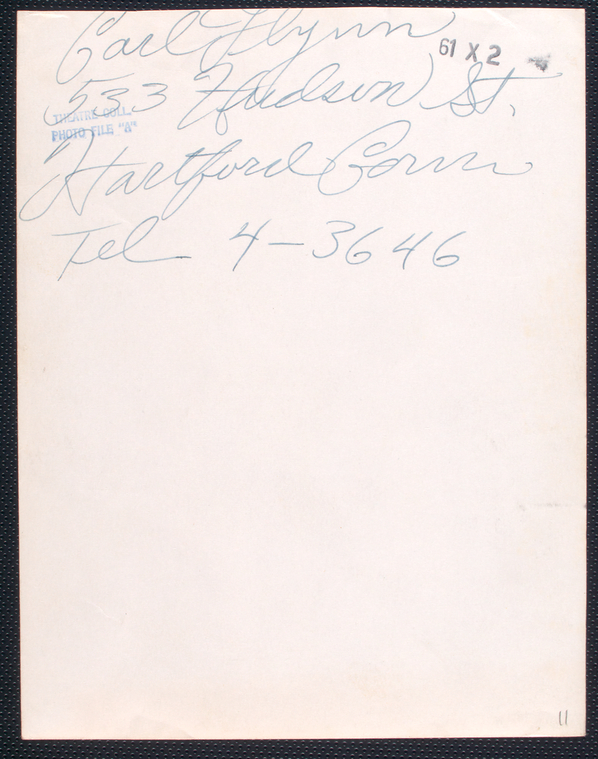 Carl Flynn
61 X 2
533 Hudson St.
THEATRE COLL.
PHOTO FILE "A"
Hartford Conn
Tel 4-3646
11